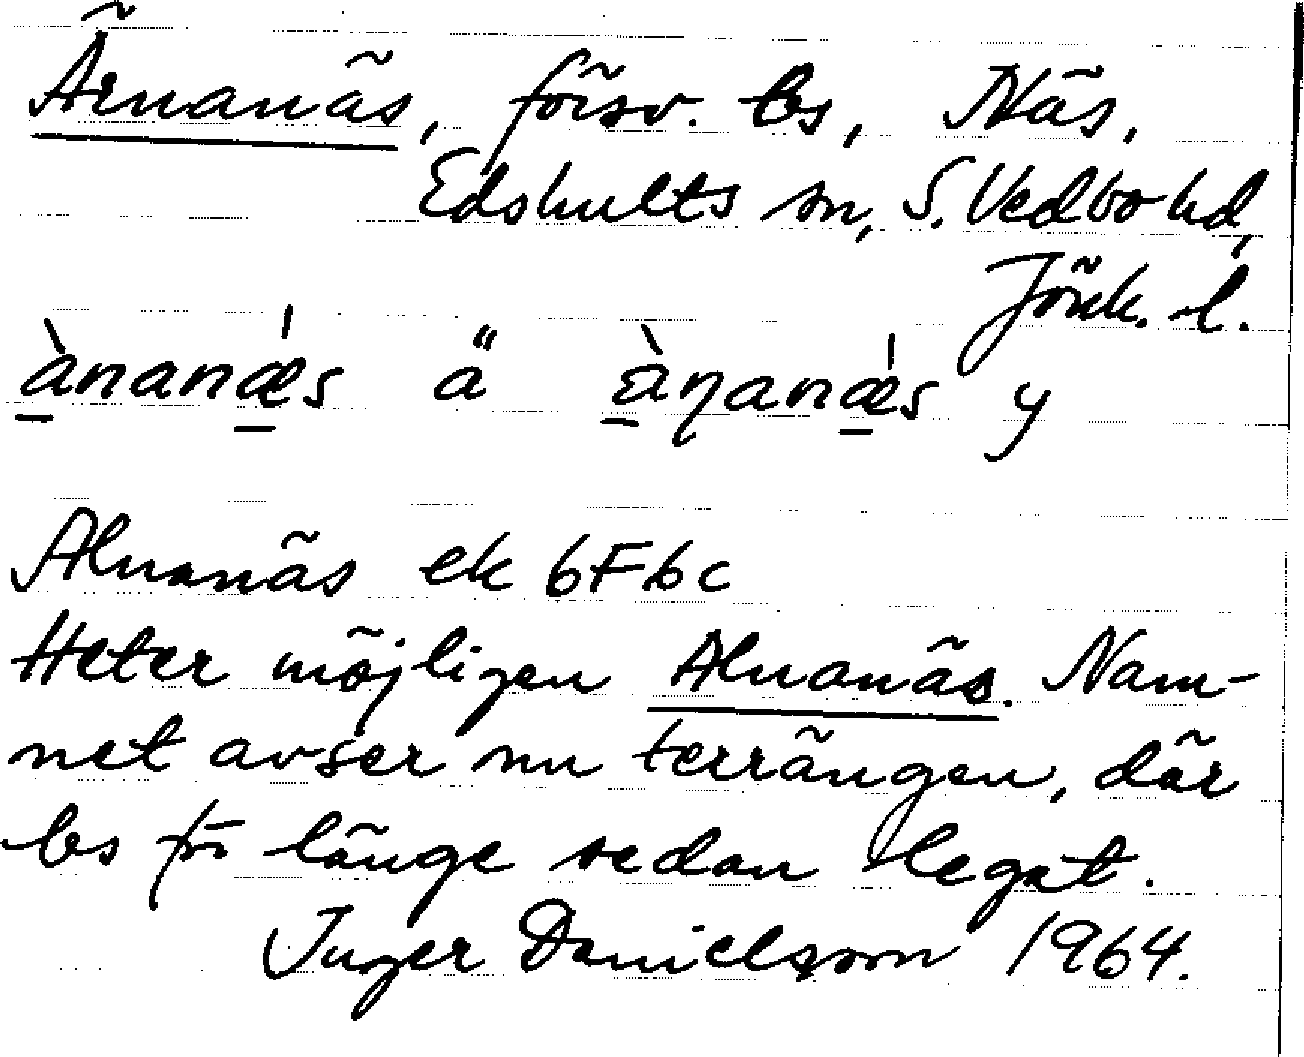 Ärnanäs, försv. bs, Näs,
Edshults sn, S. Vedbo hd,
Jönk. l.
ànanǽs ä àɳanǽs y
Alnanäs ek 6F6c
Heter möjligen Alnanäs. Nam-
net avser nu terrängen, där
bs för länge sedan legat.
Inger Danielsson 1964.